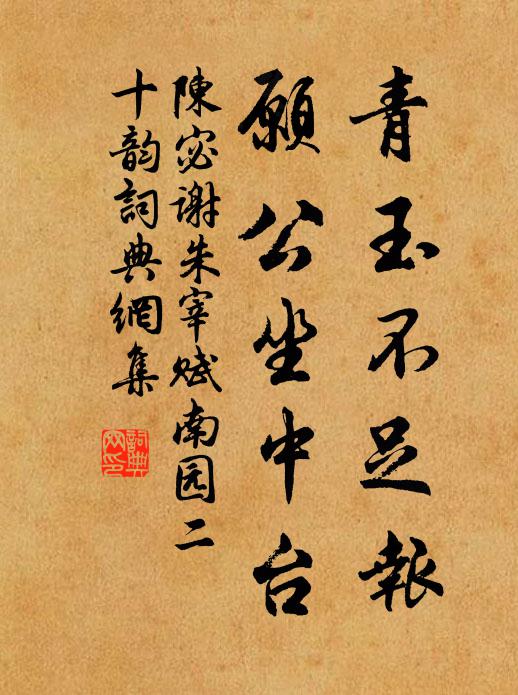 青玉不足報
願公坐中台
陳宓谢朱宰赋南园二
十韵詞典網集
詞典網印